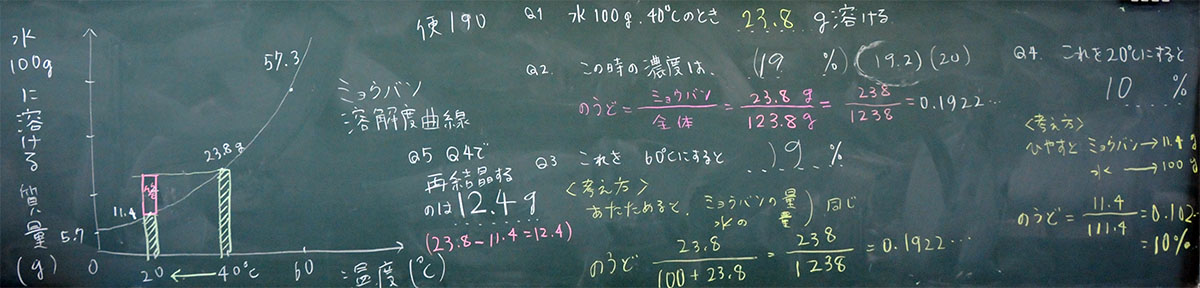 水100gに溶ける質量(g)
57.3
23.8g
11.4
5.7
答
0 20 ← 40℃ 60 温度(℃)
ミョウバン
溶解度曲線
便190
Q1 水100g、40℃のとき 23.8 g溶ける
Q2. この時の濃度は、(19 %) (19.2)(20)
のうど=ミョウバン/全体=23.8g/123.8g=238/1238=0.1922…
Q3 これを60℃にすると 19 %
〈考え方〉
あたためると、ミョウバンの量
水の量 )同じ
のうど 23.8/100+23.8=238/1238=0.1922…
Q5 Q4で
再結晶する
のは12.4g
(23.8-11.4=12.4)
Q4. これを20℃にすると
10 %
〈考え方〉
ひやすとミョウバン→11.4g
水→100g
のうど=11.4/111.4=0.102
=10%